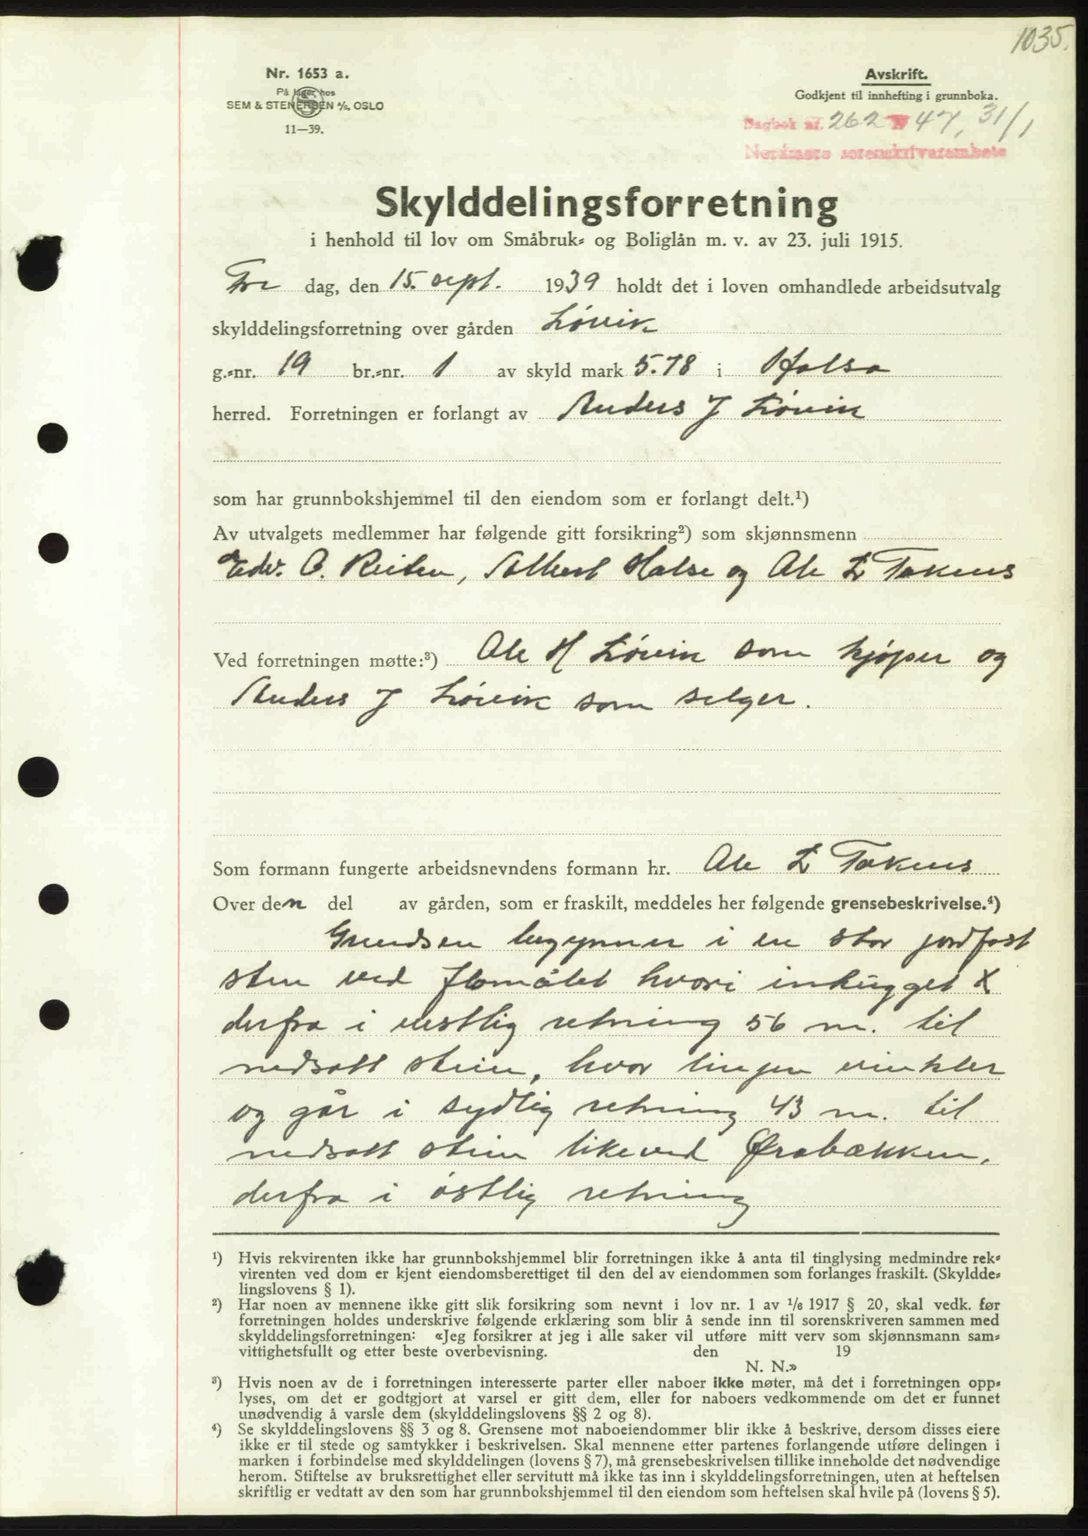 1035.
Nr. 1653 a.
På lager hos
SEM & STENERSEN A/S, OSLO
11—39.
Avskrift.
Godkjent til innhefting i grunnboka.
Dagbok nr. 262 47, 31/1
Nordmøre sorenskriverembete
Skylddelingsforretning
i henhold til lov om Småbruk= og Boliglån m. v. av 23. juli 1915.
Fre dag, den 15. sept. 1939 holdt det i loven omhandlede arbeidsutvalg
skylddelingsforretning over gården Løvik
g.=nr. 19 br.=nr. 1 av skyld mark 5.78 i Halsa
herred. Forretningen er forlangt av Anders J Løvik
som har grunnbokshjemmel til den eiendom som er forlangt delt.¹)
Av utvalgets medlemmer har følgende gitt forsikring²) som skjønnsmenn
Edv. O. Reiten, Albert Halse og Ole L Tøkens
Ved forretningen møtte:³) Ole H Løvik som kjøper og
Anders J Løvik som selger.
Som formann fungerte arbeidsnevndens formann hr. Ole L Tøkens
Over den del av gården, som er fraskilt, meddeles her følgende grensebeskrivelse.⁴)
Grendsen begynner i en stor jordfast
sten ved flomålet hvori inhugget X
derfra i vestlig retning 56 m. til
nedsatt stein, hvor linjen vinkler
og går i sydlig retning 43 m. til
nedsatt stein like ved Ørabækken,
derfra i østlig retning
¹) Hvis rekvirenten ikke har grunnbokshjemmel blir forretningen ikke å anta til tinglysing medmindre rek=
virenten ved dom er kjent eiendomsberettiget til den del av eiendommen som forlanges fraskilt. (Skyldde=
lingslovens § 1).
²) Har noen av mennene ikke gitt slik forsikring som nevnt i lov nr. 1 av 1/6 1917 § 20, skal vedk. før
forretningen holdes underskrive følgende erklæring som blir å sende inn til sorenskriveren sammen med
skylddelingsforretningen: «Jeg forsikrer at jeg i alle saker vil utføre mitt verv som skjønnsmann sam=
vittighetsfullt og etter beste overbevisning. den 19
N. N.»
³) Hvis noen av de i forretningen interesserte parter eller naboer ikke møter, må det i forretningen opp=
lyses, om det er godtgjort at varsel er gitt dem, eller for naboers vedkommende om det er funnet
unødvendig å varsle dem (skylddelingslovens §§ 2 og 8).
⁴) Se skylddelingslovens §§ 3 og 8. Grensene mot naboeiendommer blir ikke å beskrive, dersom disses eiere
ikke er til stede og samtykker i beskrivelsen. Skal mennene etter partenes forlangende utføre delingen i
marken i forbindelse med skylddelingen (lovens § 7), må grensebeskrivelsen tillike inneholde det nødvendige
herom. Stiftelse av bruksrettighet eller servitutt må ikke tas inn i skylddelingsforretningen, uten at heftelsen
skriftlig er vedtatt av den som har grunnbokshjemmel til den eiendom som heftelsen skal hvile på (lovens § 5).